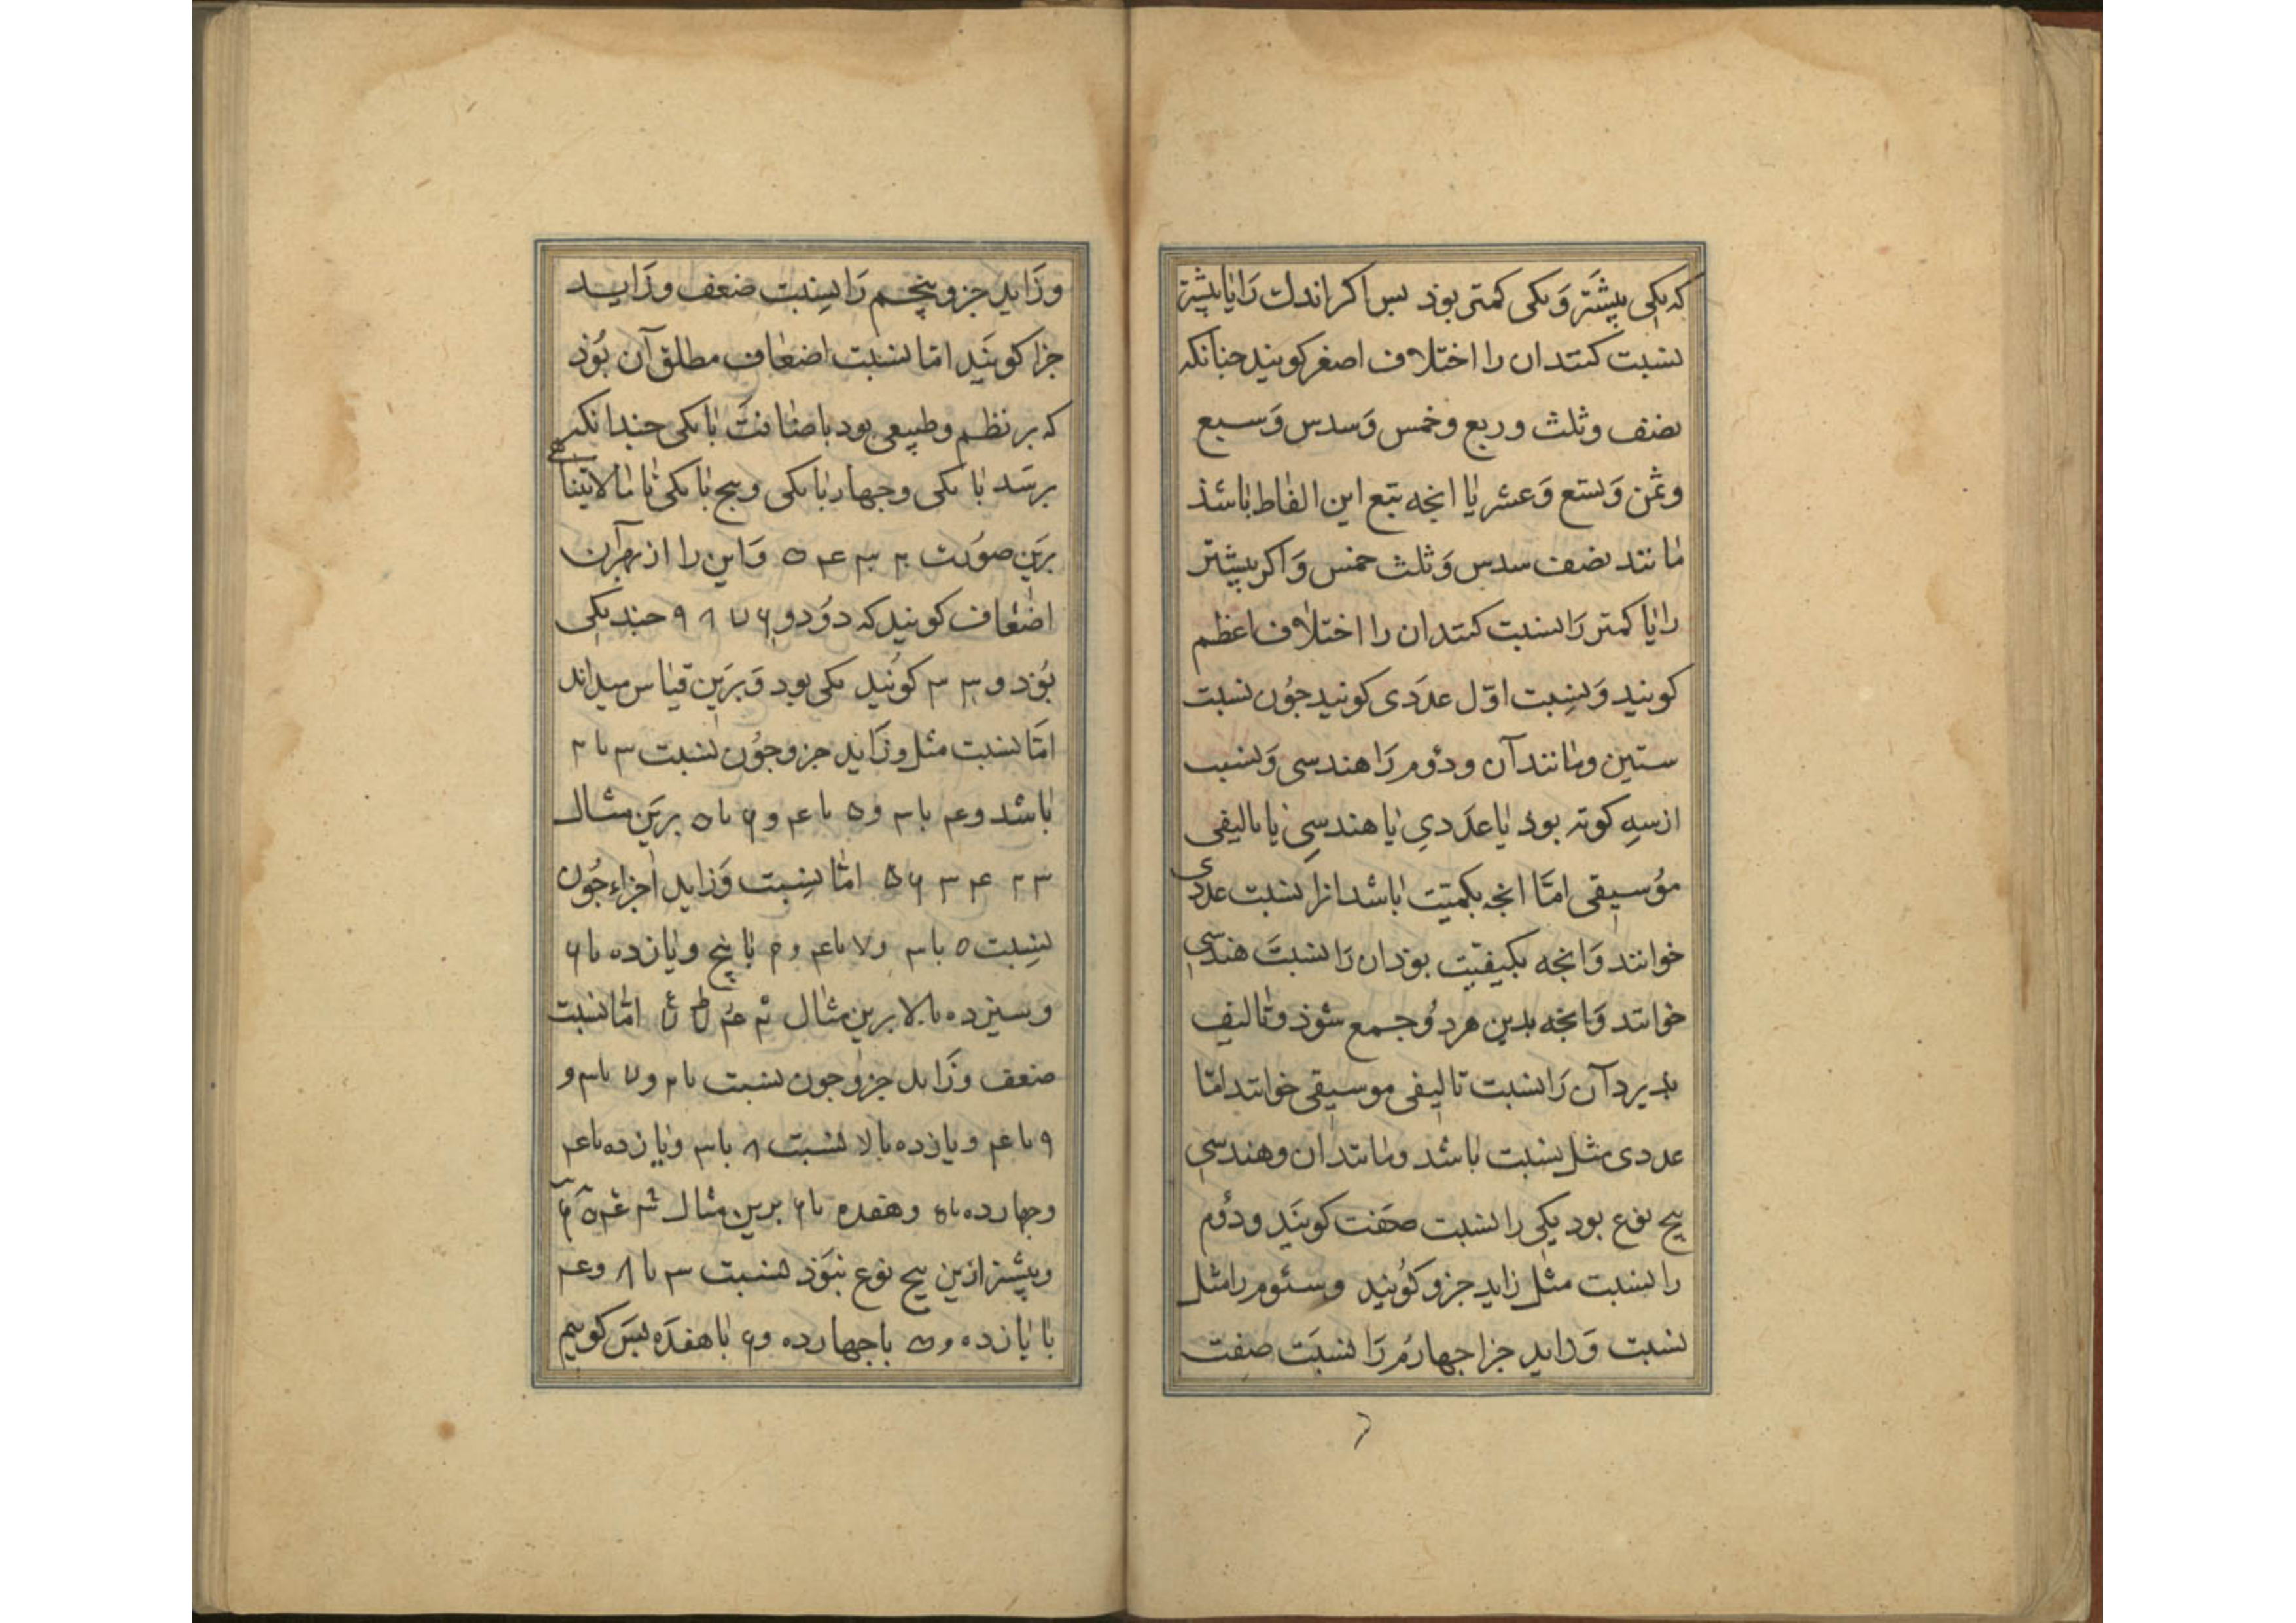 که یکی بیشتر و یکی کمتر بود بس اکر اندک را با بیشتر
نسبت کنند ان را اختلاف اصغر کویند جنانکه
نصف و ثلث و ربع و خمس و سدس و سبع
و ثمن و تسع و عشر یا انجه تبع این الفاظ باشد
مانند نصف سدس و ثلث خمس و اکر بیشتر
را با کمتر را نسبت کنند ان را اختلاف اعظم
کویند و نسبت اول عددی کویند جون نسبت
ستین و مانند آن و دوم را هندسی و نسبت
از سه کونه بود یا عددی یا هندسی یا تالیفی
موسیقی اما انجه بکمیت باشد انرا نسبت عددی
خوانند و انجه بکیفیت بود ان را نسبت هندسی
خوانند و انجه بدین هر دو جمع شود و تالیف
بدیرد آن را نسبت تالیفی موسیقی خوانند اما
عددی مثل نسبت باشد و مانند ان و هندسی
پنج نوع بود یکی را نسبت کویند و دوم
را نسبت مثل زاید جزو کویند و سئوم را مثل
نسبت و زاید جزا جهارم را نسبت صفت
و زاید جزو پنجم را نسبت ضعف و زاید
جزا کویند اما نسبت اضعاف مطلق آن بود
که بر نظم و طبیعی بود باضافت با یکی جندانکه
برسد با یکی و جهار با یکی و پنج با یکی تا مالایتناهی
برین صورت ۲ ۳ ۴ ۵ و این را از بهر آن
اضعاف کویند که دو دو ۶ ۷ ۸ ۹ جند یکی
بود و ۳ ۳ کویند یکی بود و برین قیاس میداند
اما نسبت مثل و زاید جزو جون نسبت ۳ با ۲
باشد و ۴ با ۳ و ۵ با ۴ و ۶ با ۵ برین مثال
۳ ۲ ۴ ۳ ۶ ۵ اما نسبت و زاید اجزاء جون
نسبت ۵ با ۳ و ۷ با ۴ و ۹ با پنج و یازده با ۶
و سیزده با لا برین مثال اما نسبت
ضعف و زاید جزو جون نسبت با ۲ و ۷ با ۳ و
۹ با ۴ و یازده با لا نسبت ۸ با ۳ و یازده با ۴
و جهارده با ۵ و هفده با ۶ برین مثال
و بیشتر ازین پنج نوع نبود نسبت ۳ با ۸ و ۴
با یازده و ۵ با جهارده و ۶ با هفده بس کوییم